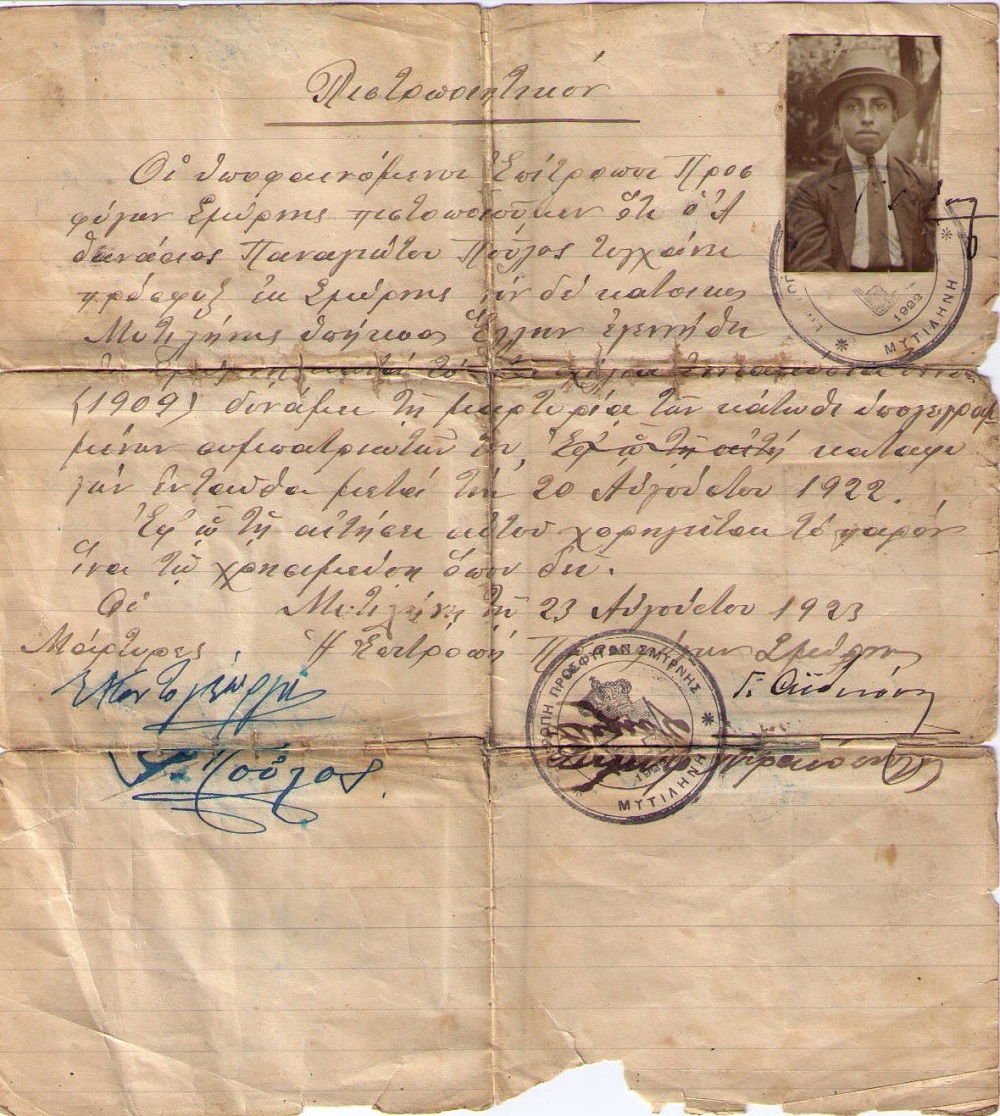 Πιστοποιητικόν
Οἱ ὑποφαινόμενοι Ἐπίτροποι Προσ
φύγων Σμύρνης πιστοποιοῦμεν ὅτι ὁ Ἀ
θανάσιος Παναγιώτου Ποῦλος τυγχάνει
πρόσφυξ ἐκ Σμύρνης νῦν δέ κάτοικος
Μυτιλήνης ὑπήκοος Ἕλλην ἐγεννήθη
κατά τό χίλια
(1909) δυνάμει τῇ μαρτυρίᾳ τῶν κάτωθι ὑπογεγραμ
μένων συμπατριωτῶν του, Ἐφ ᾧ τῇ αἰτή καταφυ
γών ἐνταῦθα μετά τήν 20 Αὐγούστου 1922.
Ἐφ ᾧ τῇ αἰτήσει αὐτοῦ χορηγεῖται τό παρόν
ἵνα τῷ χρησιμεύσῃ ὅπου δεῖ.
Οἱ Μυτιλήνη τῇ 23 Αὐγούστου 1923
Μάρτυρες Ἡ Ἐπιτροπή Προσφύγων Σμύρνης
Γ.
Ποῦλος
ΕΠΙΤΡΟΠΗ ΠΡΟΣΦΥΓΩΝ ΣΜΥΡΝΗΣ
1922
ΜΥΤΙΛΗΝΗ
1922
ΜΥΤΙΛΗΝΗ